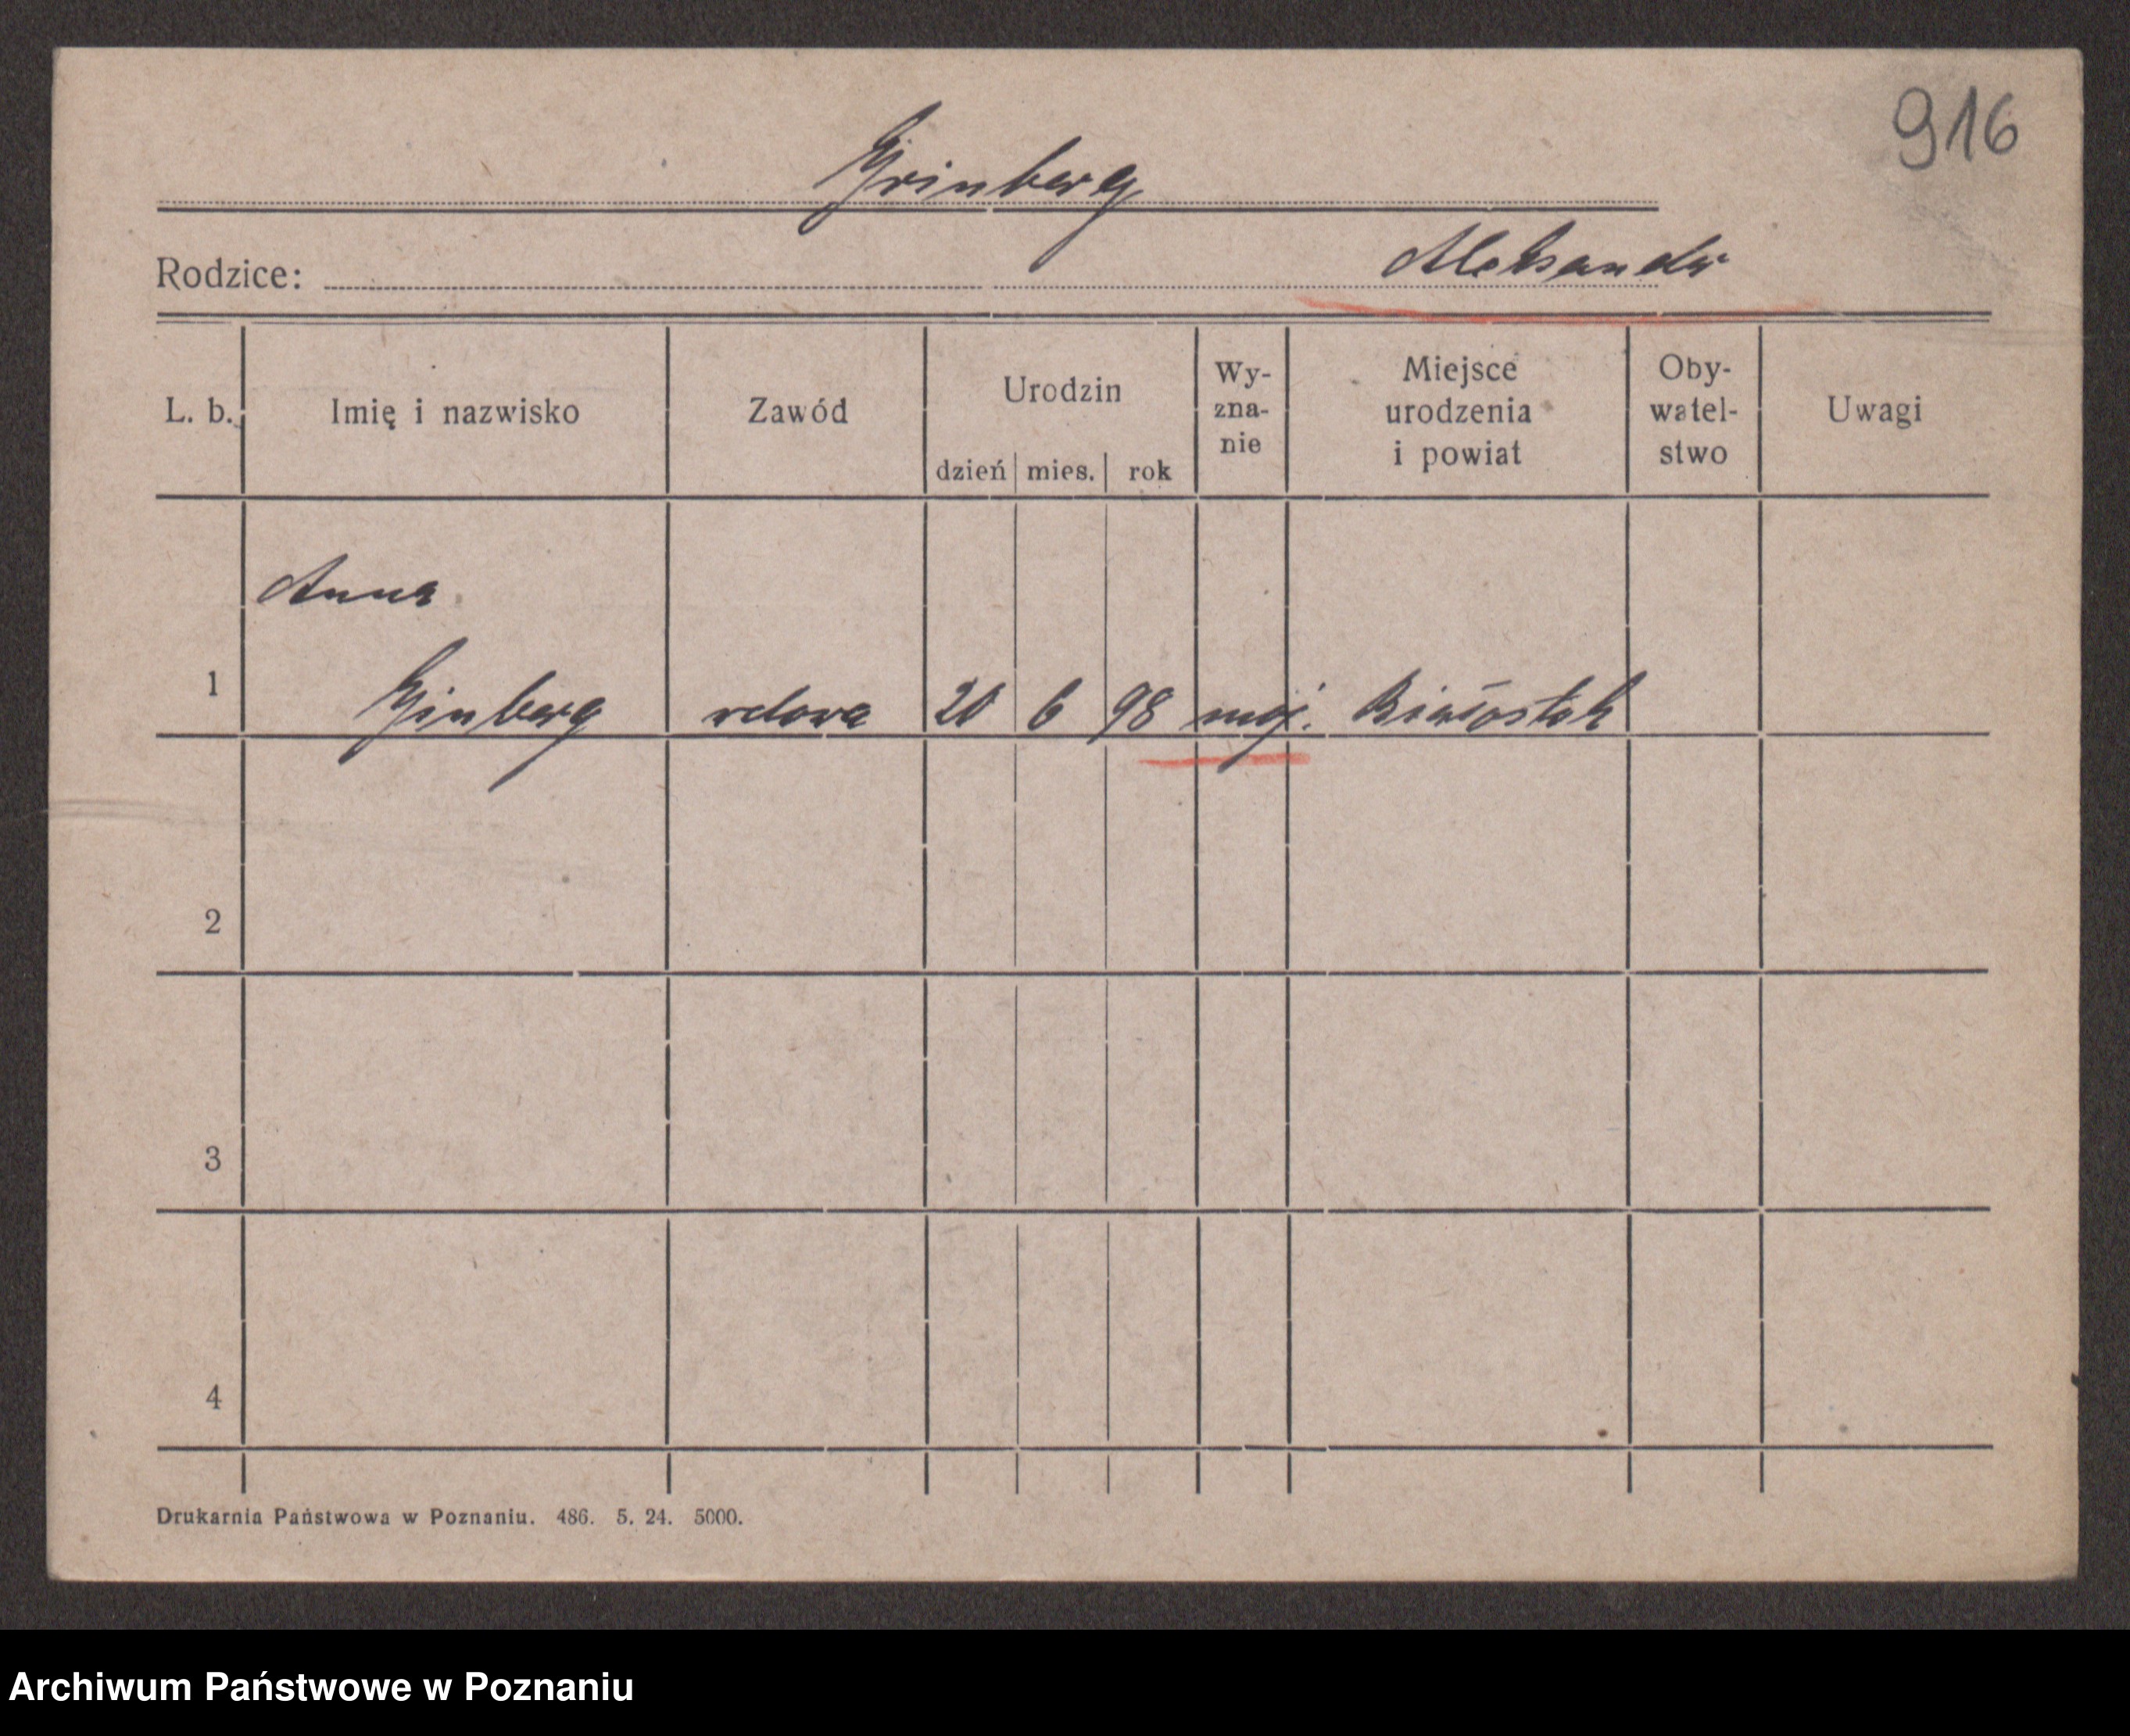 916
Grinberg
Rodzice: Aleksandr
L. b. Imię i nazwisko Zawód Urodzin dzień mies. rok Wy-zna-nie Miejsce urodzenia i powiat Oby-watel-stwo Uwagi
Anna
1 Ginberg wdowa 20 6 98 mojż. Białostok
2
3
4
Drukarnia Państwowa w Poznaniu. 486. 5. 24. 5000.
Archiwum Państwowe w Poznaniu